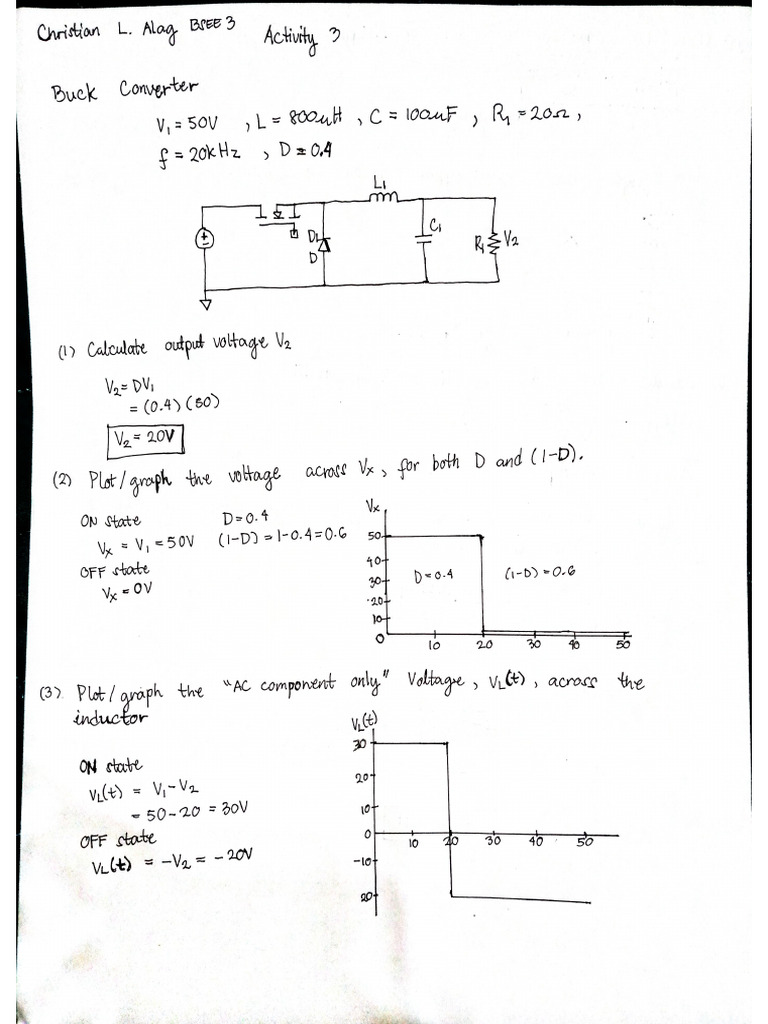 Christian L. Alag BSEE 3 Activity 3
Buck Converter
V₁ = 50V , L = 800uH , C = 100uF , R₁ = 20Ω ,
f = 20kHz , D = 0.4
L₁
D₁
D
C₁
R₁
V₂
(1) Calculate output voltage V₂
V₂ = DV₁
= (0.4) (50)
V₂ = 20V
(2) Plot/graph the voltage across Vx , for both D and (1-D).
ON state D = 0.4
Vx = V₁ = 50V (1-D) = 1-0.4 = 0.6
OFF state
Vx = 0V
Vx
50
40
30
20
10
0
D = 0.4 (1-D) = 0.6
10 20 30 40 50
(3) Plot/graph the "AC component only" Voltage, VL(t), across the
inductor
ON state
VL(t) = V₁ - V₂
= 50 - 20 = 30V
OFF state
VL(t) = -V₂ = -20V
VL(t)
30
20
10
0
-10
20
10 20 30 40 50